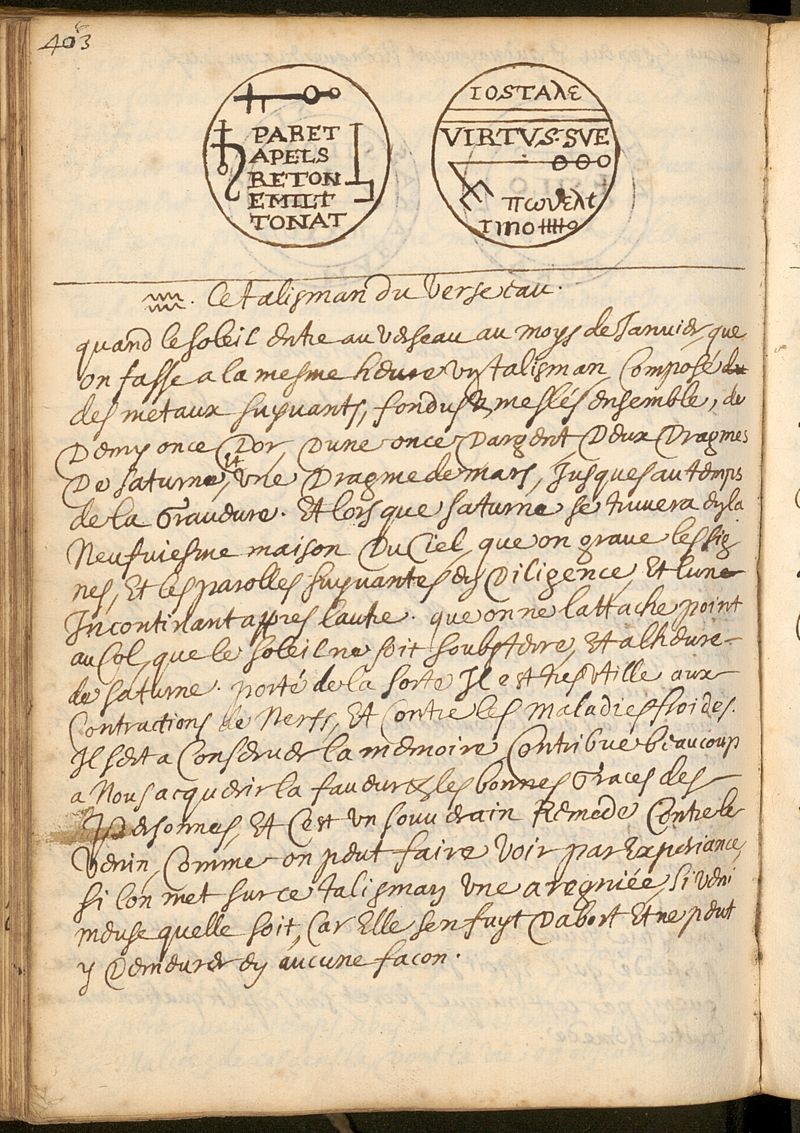 403
PARET
APELS
RETON
EMILT
TONAT
IOSTAλE
VIRTVS·SVE
πωυελτ
♒. Ce talisman du Verseau.
quand le soleil entre au verseau au moys de Janvier, que
on fasse a la mesme heure un talisman Composé
des metaux suyuants, fondus & meslés ensemble, de
Demy once Dor, Dune once Dargent, Deux Dragmes
De saturne, et Vne Dragme de mars, Jusques au temps
de la Graueure. Et lors que saturne se truuera en la
Neufuiesme maison Du Ciel, que on graue les sig
nes, Et les parolles suyuantes en Diligence, Et lune
Incontinant appres lautre. que on ne lattache point
au Col, que le soleil ne soit soubsterre, Et a lheure
de saturne. porté de la sorte Il est tres vtille aux
Contractions de Nerfs, Et Contre les maladies froides.
Il sert a Conseruer la memoire, Contribue beaucoup
a Nous acquerir la faueur & les bonnes Graces des
Personnes, Et C'est vn souuerain Remede Contre le
Venin, Comme on peut faire Voir par Experiance,
si lon met sur ce talisman Vne aregniée, si Veni
meuse quelle soit, Car Elle sen fuyt Dabort Et ne peut
y Demeurer en aucune facon.